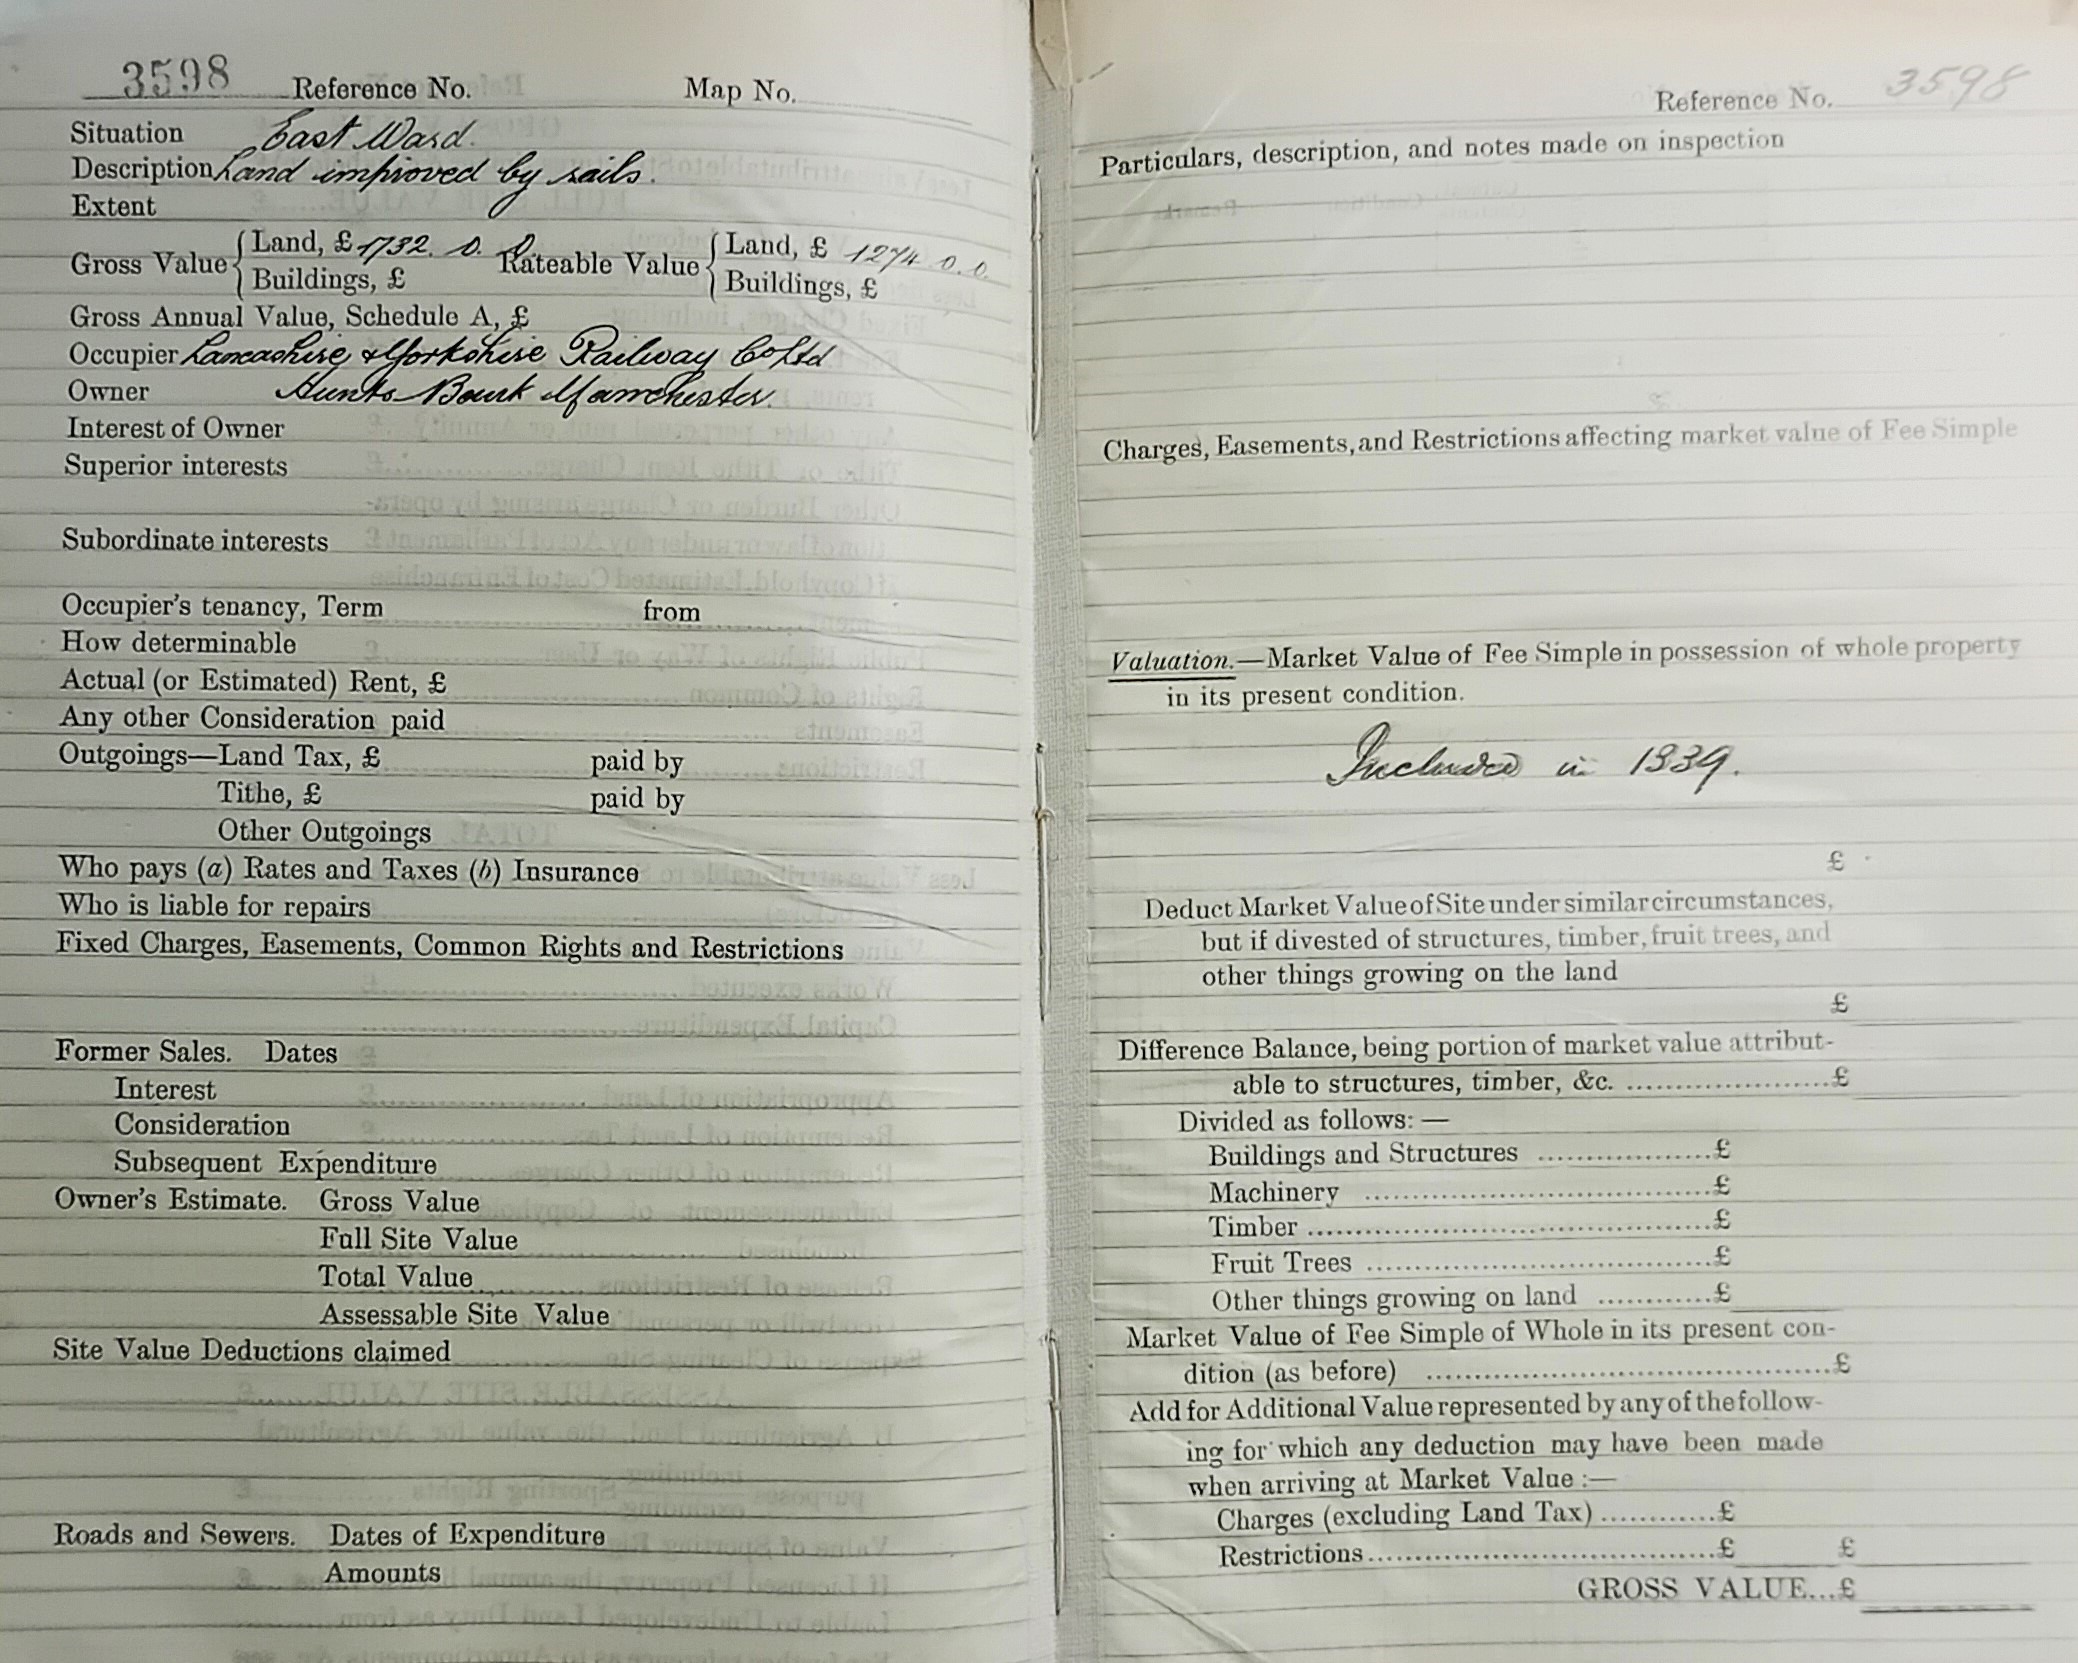 3598 Reference No. Map No.
Situation East Ward.
Description Land improved by rails.
Extent
Gross Value { Land, £ 1732. 0. 0. Rateable Value { Land, £ 1274 0. 0.
Buildings, £ Buildings, £
Gross Annual Value, Schedule A, £
Occupier Lancashire & Yorkshire Railway Co Ltd
Owner Hunts Bank Manchester.
Interest of Owner
Superior interests
Subordinate interests
Occupier's tenancy, Term from
How determinable
Actual (or Estimated) Rent, £
Any other Consideration paid
Outgoings—Land Tax, £ paid by
Tithe, £ paid by
Other Outgoings
Who pays (a) Rates and Taxes (b) Insurance
Who is liable for repairs
Fixed Charges, Easements, Common Rights and Restrictions
Former Sales. Dates
Interest
Consideration
Subsequent Expenditure
Owner's Estimate. Gross Value
Full Site Value
Total Value
Assessable Site Value
Site Value Deductions claimed
Roads and Sewers. Dates of Expenditure
Amounts
Reference No. 3598
Particulars, description, and notes made on inspection
Charges, Easements, and Restrictions affecting market value of Fee Simple
Valuation.—Market Value of Fee Simple in possession of whole property
in its present condition.
Included in 1339.
£
Deduct Market Value of Site under similar circumstances,
but if divested of structures, timber, fruit trees, and
other things growing on the land
£
Difference Balance, being portion of market value attribut-
able to structures, timber, &c. ....................£
Divided as follows:—
Buildings and Structures ..................£
Machinery ....................................£
Timber ..........................................£
Fruit Trees ....................................£
Other things growing on land ............£
Market Value of Fee Simple of Whole in its present con-
dition (as before) ..........................................£
Add for Additional Value represented by any of the follow-
ing for which any deduction may have been made
when arriving at Market Value :—
Charges (excluding Land Tax) ............£
Restrictions ....................................£ £
GROSS VALUE...£